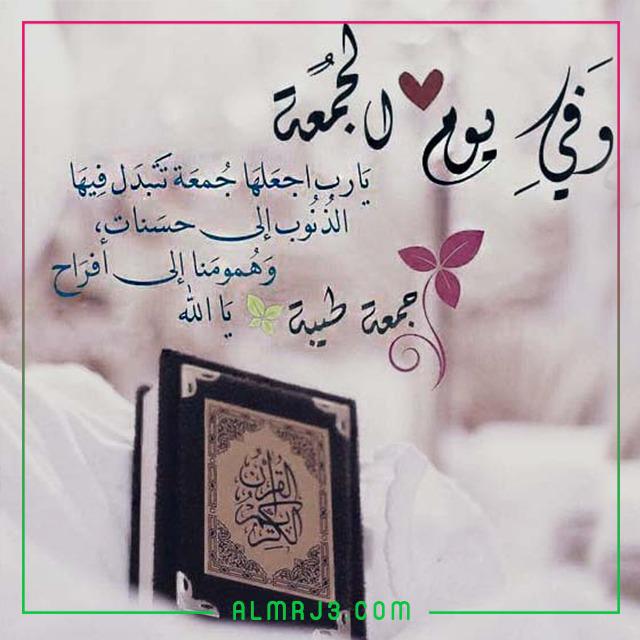 وَفي يوم الجُمعة
يَارب اجعَلهَا جُمعَة تَتبَدل فِيهَا
الذُنُوب إلى حسَنات،
وَهُمومَنا إلى أفرَاح
يَا الله
جمعة طيبة
القرآن
الكريم
ALMRJ3.COM